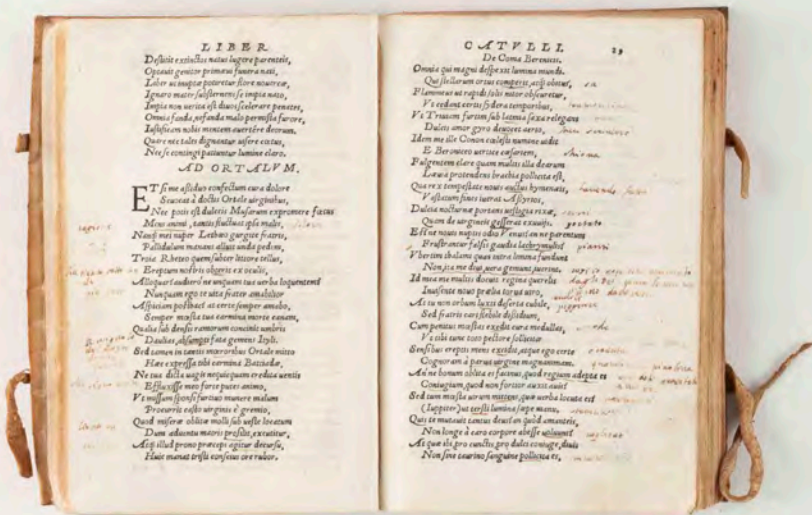 LIBER
Destitit extinctos natus lugere parenteis,
Optauit genitor primæui funera nati,
Liber ut nuptæ poteretur flore nouercæ,
Ignaro mater substernens se impia nato,
Impia non uerita est diuos scelerare penates,
Omnia fanda, nefanda malo permista furore,
Iustificam nobis mentem auertêre deorum.
Quare nec tales dignantur uisere cœtus,
Nec se contingi patiuntur lumine claro.
AD ORTALVM.
ET si me assiduo confectum cura dolore
Seuocat à doctis Ortale uirginibus,
Nec potis est dulceis Musarum expromere fœtus
Mens animi, tantis fluctuat ipsa malis,
Nanq; mei nuper Lethæo gurgite fratris,
Pallidulum manans alluit unda pedem,
Troia Rhœteo quem subter littore tellus,
Ereptum nostris obterit ex oculis,
Alloquar? audiero ne unquam tua uerba loquentem?
Nunquam ego te uita frater amabilior
Aspiciam posthac? at certe semper amabo,
Semper mœsta tua carmina morte canam,
Qualia sub densis ramorum concinit umbris
Daulias, absumpti fata gemens Ityli.
Sed tamen in tantis mœroribus Ortale mitto
Hæc expressa tibi carmina Battiadæ,
Ne tua dicta uagis nequicquam credita uentis
Effluxisse meo forte putes animo,
Vt missum sponsi furtiuo munere malum
Procurrit casto uirginis è gremio,
Quod miseræ oblitæ molli sub ueste locatum
Dum aduentu matris prosilit, excutitur,
Atq; illud prono præceps agitur decursu,
Huic manat tristi conscius ore rubor.
CATVLLI. 29
De Coma Berenices.
Omnia qui magni despexit lumina mundi.
Qui stellarum ortus comperit, atq; obitus,
Flammeus ut rapidi solis nitor obscuretur,
Vt cedant certis sydera temporibus,
Vt Triuiam furtim sub latmia saxa relegans
Dulcis amor gyro deuocet aerio,
Idem me ille Conon cœlesti numine uidit
E Bereniceo uertice cæsariem,
Fulgentem clare quam multis illa dearum
Læuia protendens brachia pollicita est,
Qua rex tempestate nouis auctus hymenæis,
Vastatum fines iuerat Assyrios,
Dulcia nocturnæ portans uestigia rixæ,
Quam de uirgineis gesserat exuuijs.
Est ne nouis nuptis odio Venus? an ne parentum
Frustrantur falsis gaudia lachrymulis?
Vbertim thalami quas intra limina fundunt
Non, ita me diui, uera gemunt, iuerint.
Id mea me multis docuit regina querelis
Inuisente nouo prælia torua uiro,
At tu non orbum luxti deserta cubile,
Sed fratris cari flebile discidium,
Cum penitus mœstas exedit cura medullas,
Vt tibi tunc toto pectore sollicitæ
Sensibus ereptis mens excidit, atque ego certe
Cognoram à parua uirgine magnanimam.
An'ne bonum oblita es facinus, quod regium adepta es
Coniugium, quod non fortior auxit auis?
Sed tum mœsta uirum mittens, quæ uerba locuta es?
(Iuppiter) ut tersti lumina sæpe manu,
Quis te mutauit tantus deus? an quòd amanteis,
Non longe à caro corpore abesse uoluunt?
At quæ ibi, pro cunctis, pro dulci coniuge, diuis
Non sine taurino sanguine pollicita es,